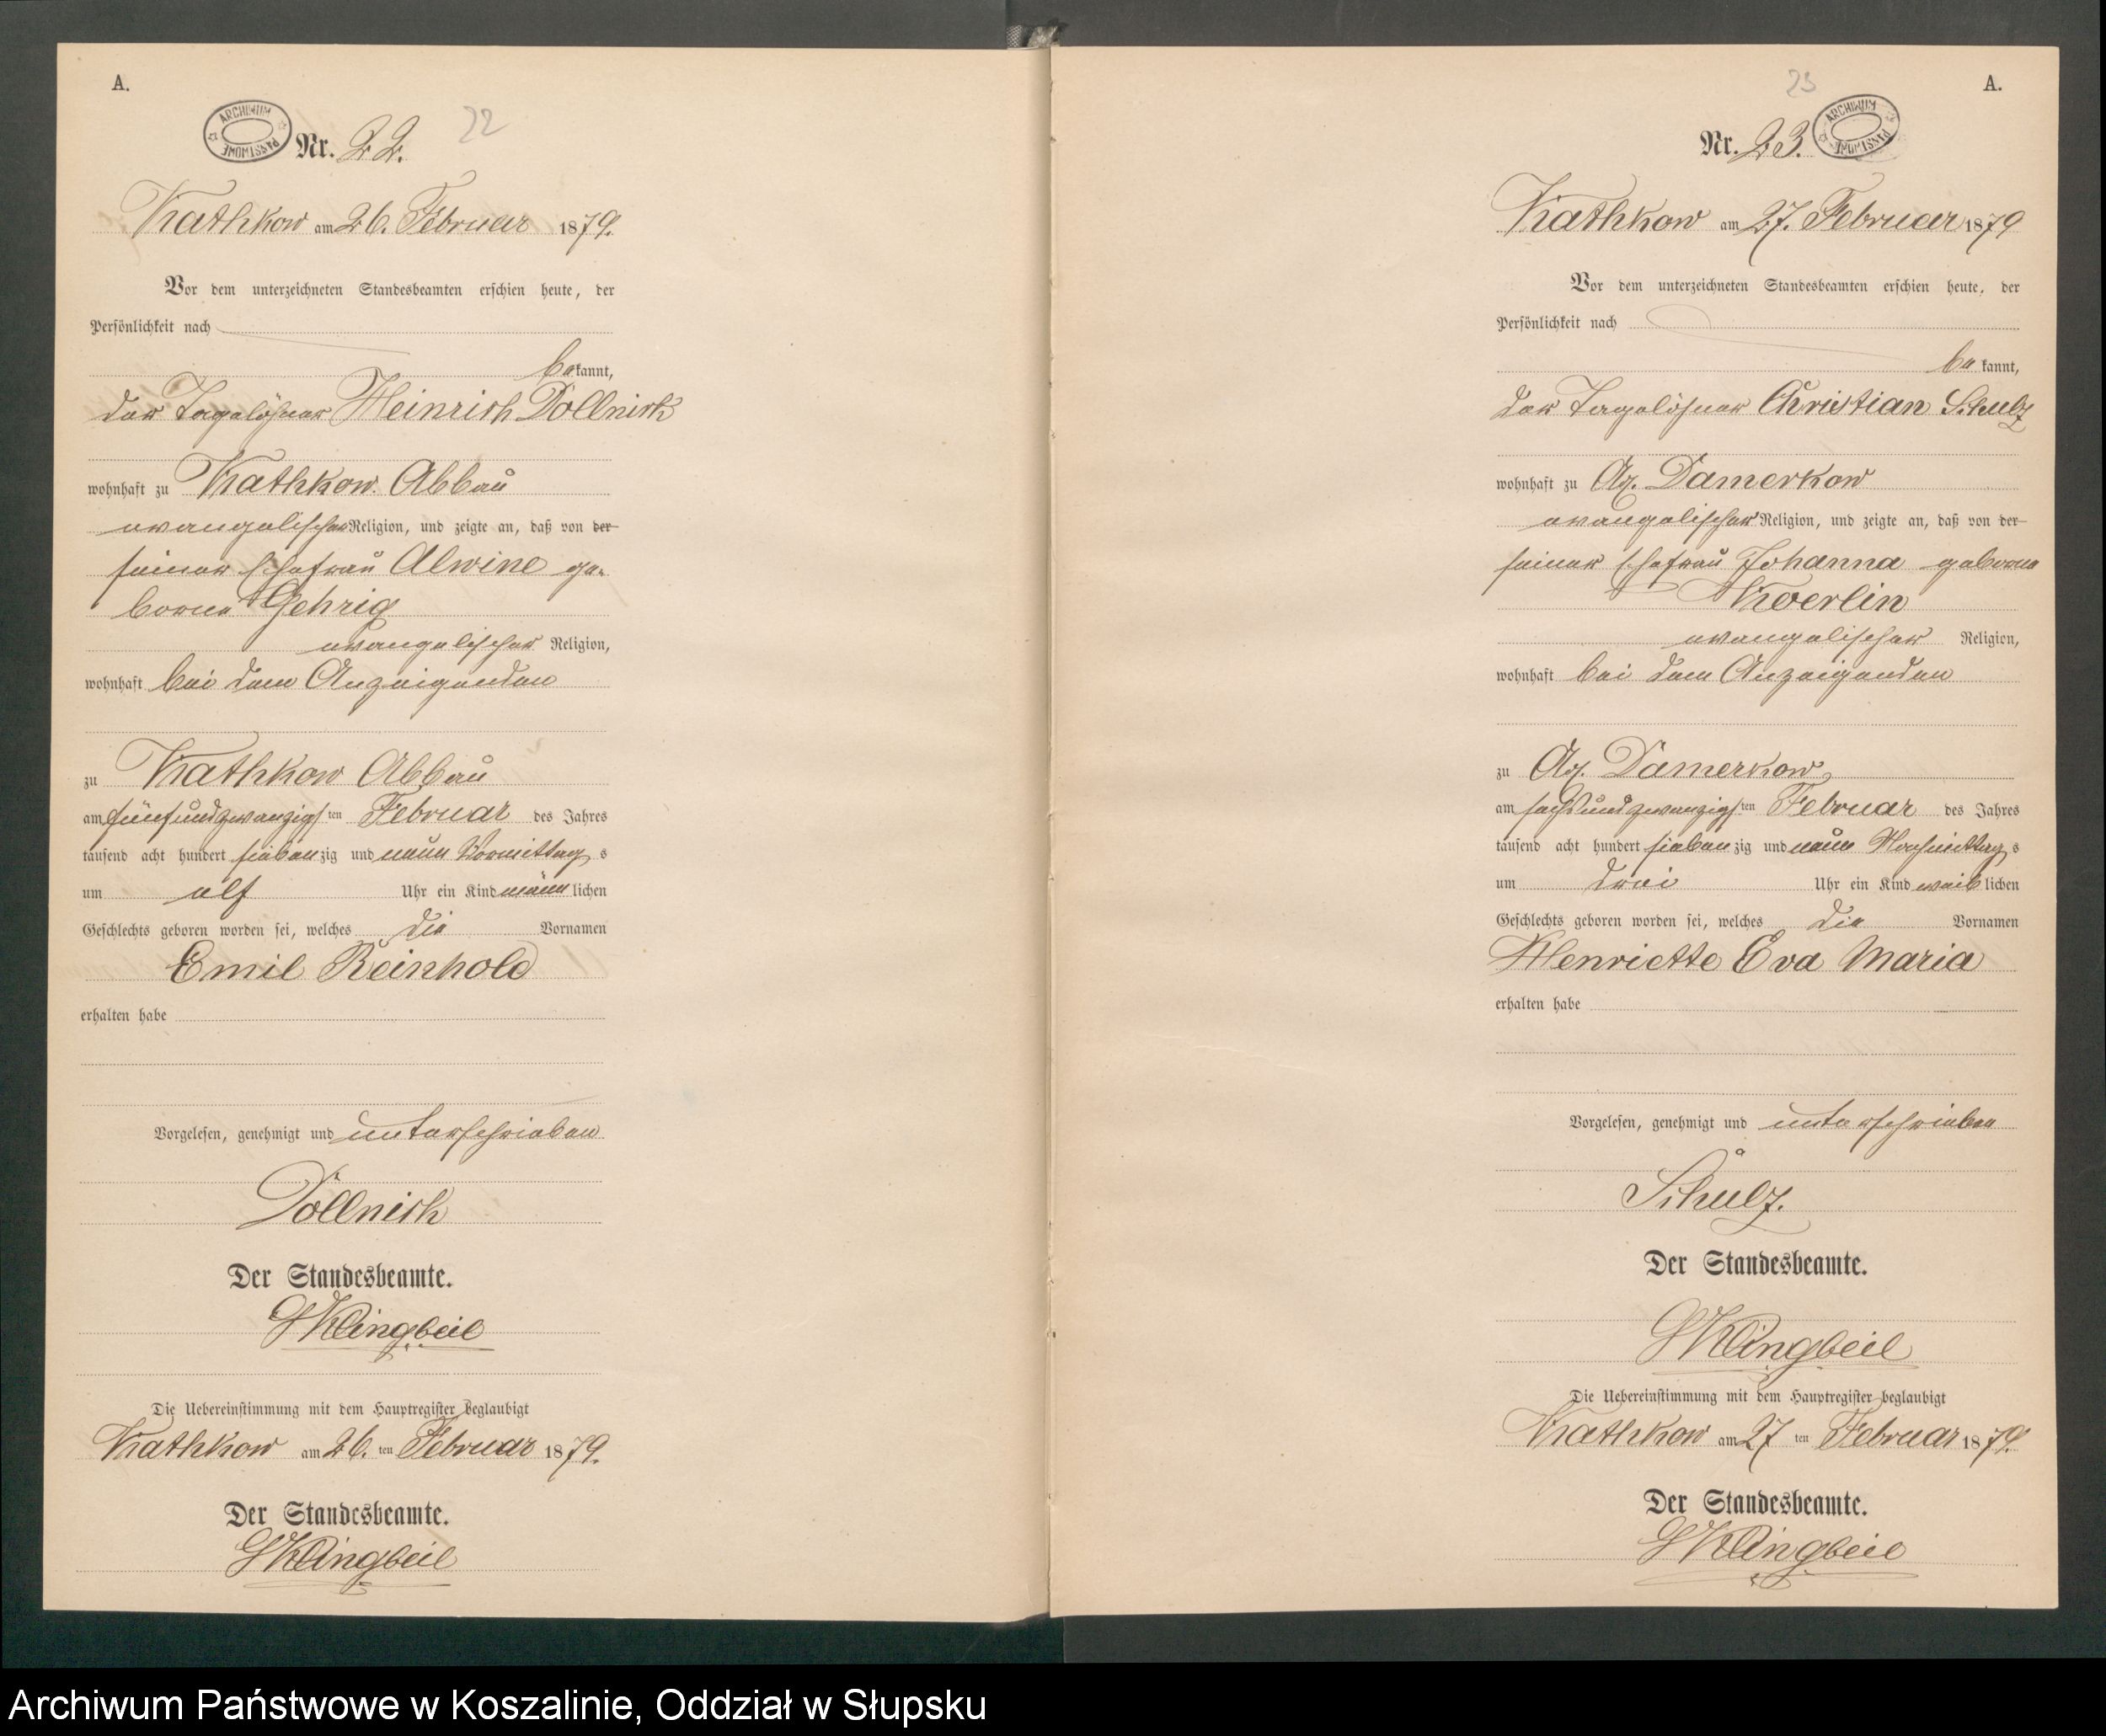 A.
ARCHIWUM PAŃSTWOWE
Nr. 22.
22
Kathkow am 26. Februar 1879.
Vor dem unterzeichneten Standesbeamten erschien heute, der
Persönlichkeit nach
bekannt,
der Tagelöhner Heinrich Dollnick
wohnhaft zu Kathkow Abbau
evangelischer Religion, und zeigte an, daß von der
seiner Ehefrau Alwine ge-
borne Gehrig
evangelischer Religion,
wohnhaft bei dem Anzeigenden
zu Kathkow Abbau
am fünfundzwanzigsten Februar des Jahres
tausend acht hundert siebenzig und neun Vormittags
um elf Uhr ein Kind männlichen
Geschlechts geboren worden sei, welches die Vornamen
Emil Reinhold
erhalten habe
Vorgelesen, genehmigt und unterschrieben
Dollnick
Der Standesbeamte.
Klingbeil
Die Uebereinstimmung mit dem Hauptregister beglaubigt
Kathkow am 26. ten Februar 1879.
Der Standesbeamte.
Klingbeil
23
A.
Nr. 23.
ARCHIWUM PAŃSTWOWE
Kathkow am 27. Februar 1879
Vor dem unterzeichneten Standesbeamten erschien heute, der
Persönlichkeit nach
bekannt,
der Tagelöhner Christian Schulz
wohnhaft zu Damerkow
evangelischer Religion, und zeigte an, daß von der
seiner Ehefrau Johanna geborne
Koerlin
evangelischer Religion,
wohnhaft bei dem Anzeigenden
zu Damerkow
am sechsundzwanzigsten Februar des Jahres
tausend acht hundert siebenzig und neun Nachmittags
um drei Uhr ein Kind weiblichen
Geschlechts geboren worden sei, welches die Vornamen
Henriette Eva Maria
erhalten habe
Vorgelesen, genehmigt und unterschrieben
Schulz.
Der Standesbeamte.
Klingbeil
Die Uebereinstimmung mit dem Hauptregister beglaubigt
Kathkow am 27 ten Februar 1879.
Der Standesbeamte.
Klingbeil
Archiwum Państwowe w Koszalinie, Oddział w Słupsku